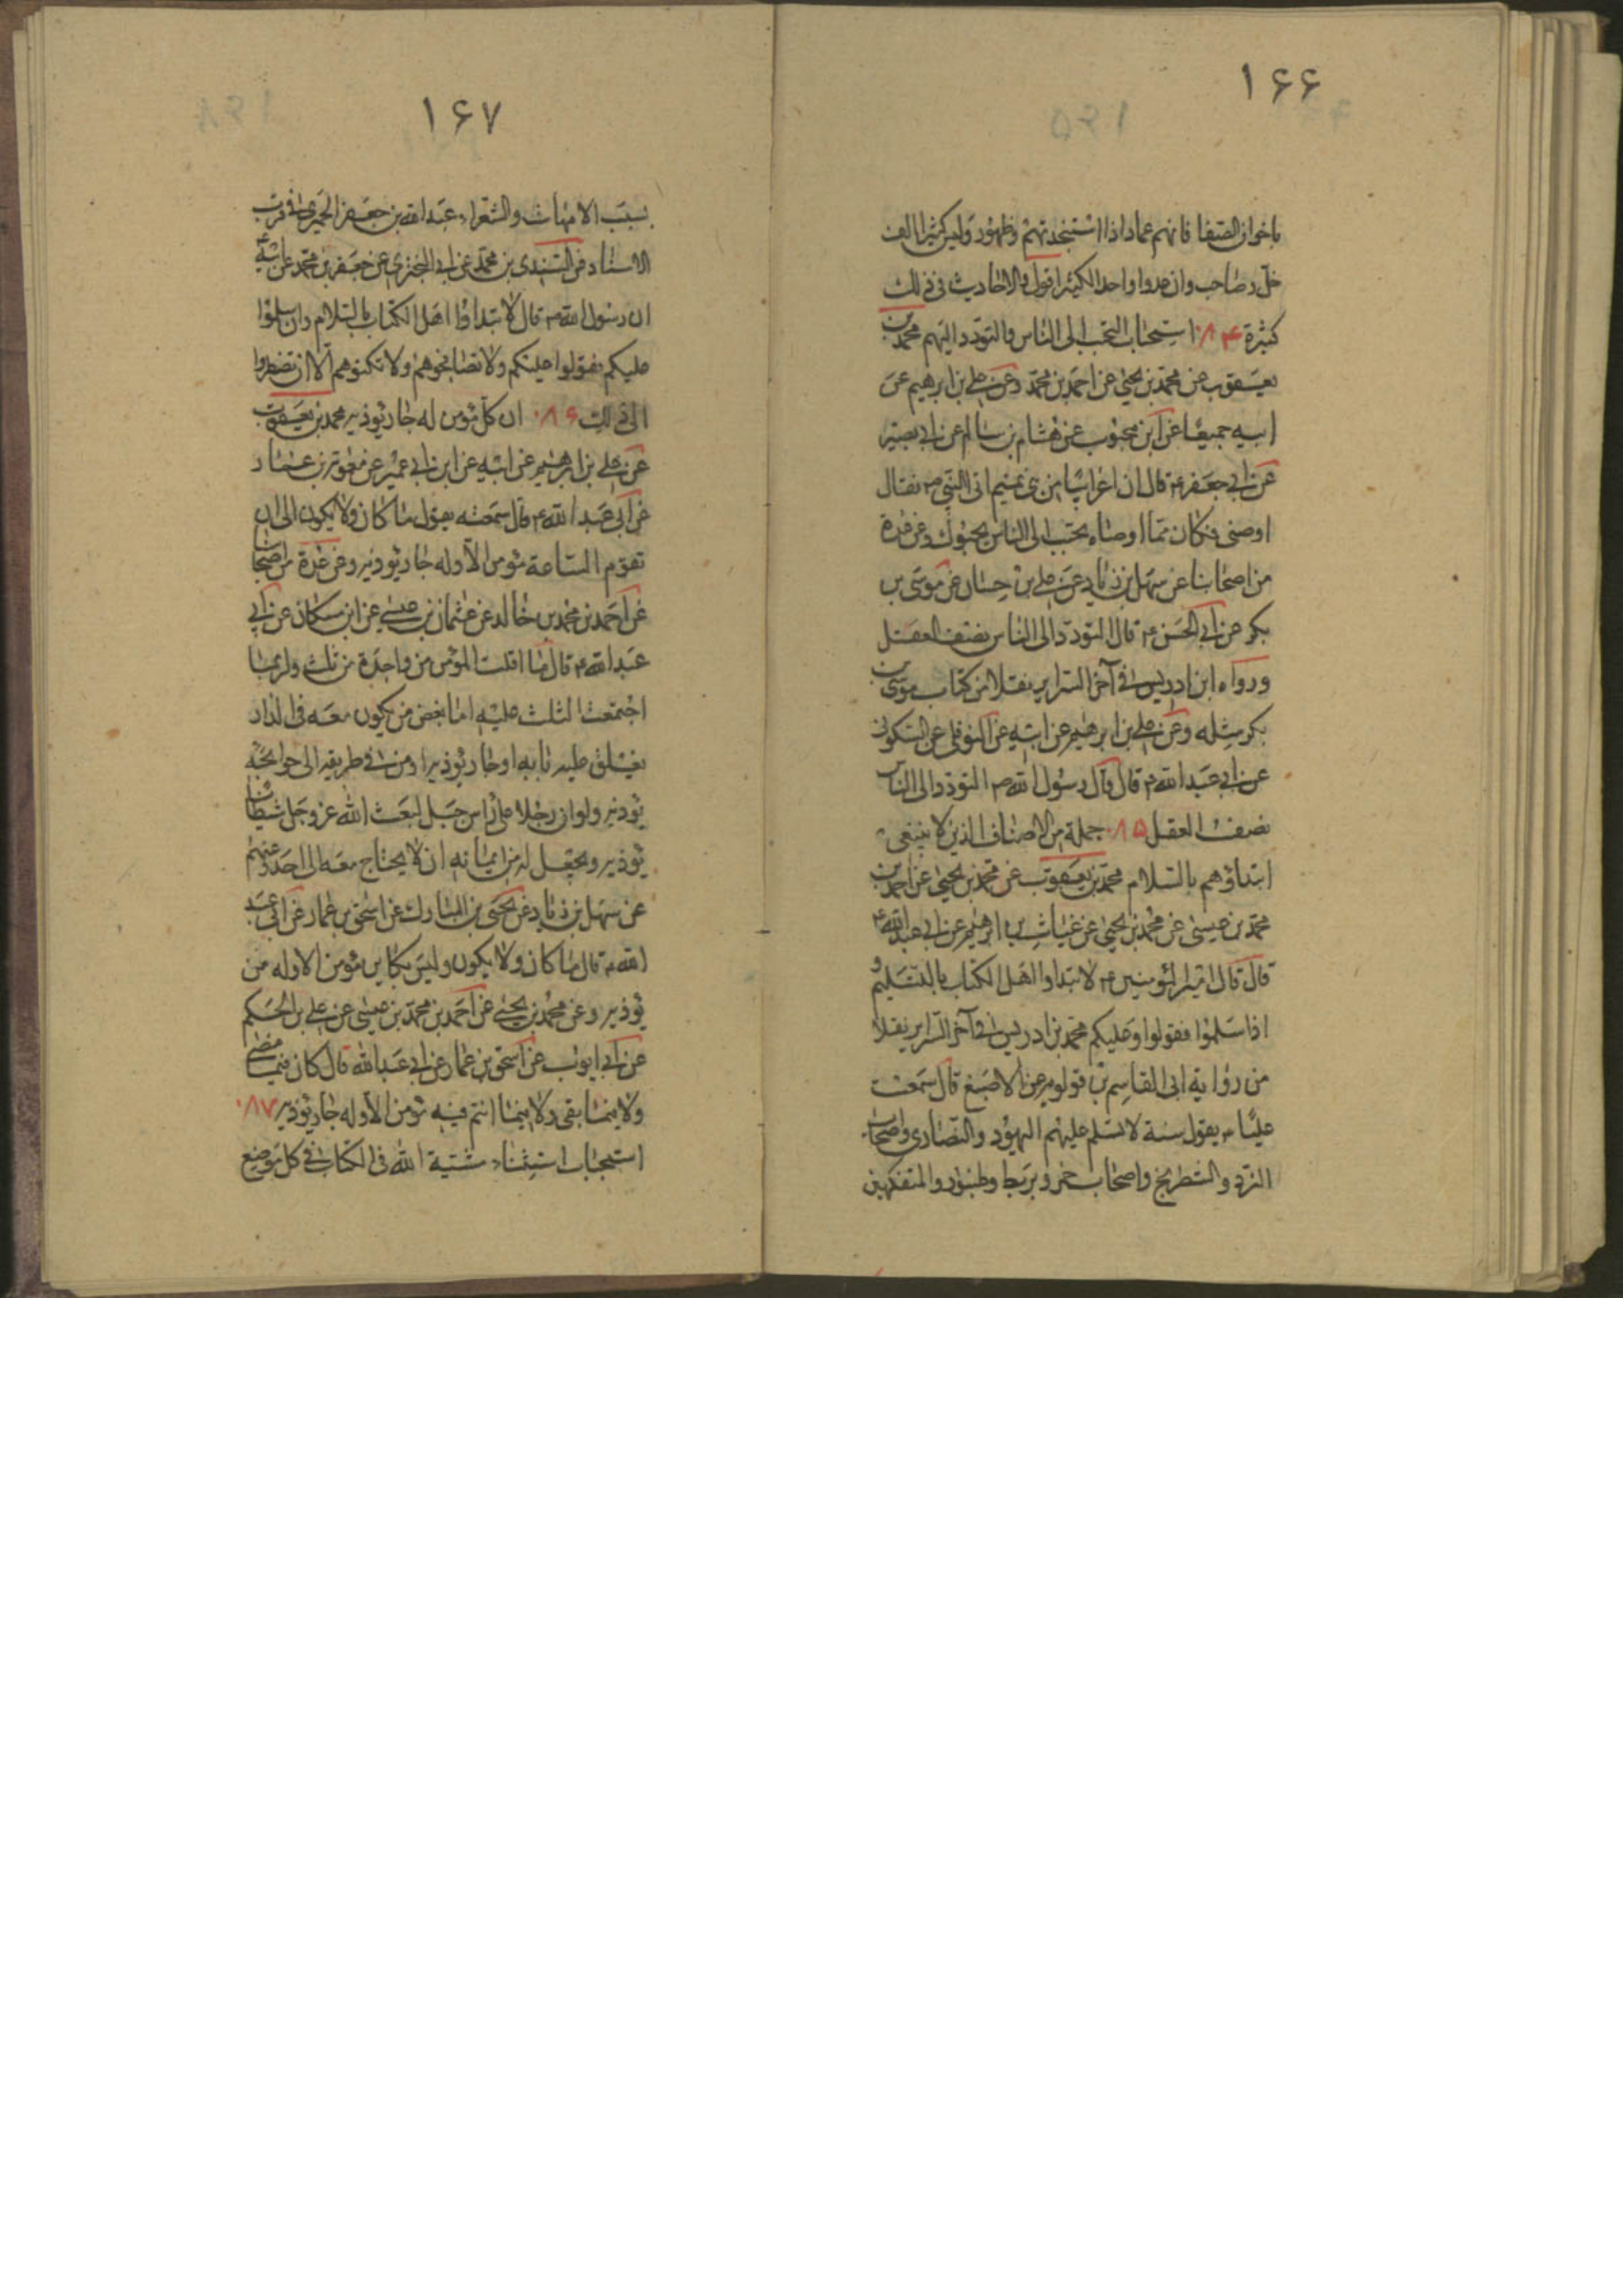 ۱۶۶
باخوان الصفا فانهم عماد اذا استنجدتهم وظهور وليس كثيرا الف
خل وصاحب وان عدوا واحدا لكثيرا قول والاحاديث في ذلك
كثيرة ۰۸۴ استحباب التحبب الى الناس والتودد اليهم محمد بن
يعقوب عن محمد بن يحيى عن احمد بن محمد وعن علي بن ابرهيم عن
ابيه جميعا عن ابن محبوب عن هشام بن سالم عن ابي بصير
عن ابي جعفر ع قال ان اعرابيا من بني تميم اتى النبي ص فقال
اوصني فكان مما اوصاه تحبب الى الناس يحبوك وعن عدة
من اصحابنا عن سهل بن زياد عن علي بن حسان عن موسى بن
بكر عن ابي الحسن ع قال التودد الى الناس نصف العقل
ورواه ابن ادريس في آخر السراير نقلا من كتاب موسى بن
بكر مثله وعن علي بن ابرهيم عن ابيه عن النوفلي عن السكوني
عن ابي عبد الله ع قال قال رسول الله ص التودد الى الناس
نصف العقل ۰۸۵ جملة من الاصناف الذين لا ينبغي
ابتداؤهم بالسلام محمد بن يعقوب عن محمد بن يحيى عن احمد بن
محمد بن عيسى عن محمد بن يحيى عن غياث بن ابرهيم عن ابي عبد الله ع
قال قال امير المؤمنين ع لا تبداوا اهل الكتاب بالتسليم و
اذا سلموا فقولوا وعليكم محمد بن ادريس في آخر السراير نقلا
من رواية ابي القاسم بن قولويه عن الاصبغ قال سمعت
عليا ع يقول ستة لا تسلم عليهم اليهود والنصارى واصحاب
النرد والشطرنج واصحاب خمر وبربط وطنبور والمتفكهين
۱۶۷
بسبب الامهات والشعراء عبد الله بن جعفر الحميري في قرب
الاسناد عن السندي بن محمد عن ابي البختري عن جعفر بن محمد عن ابيه ع
ان رسول الله ص قال لا تبداوا اهل الكتاب بالسلام وان سلموا
عليكم فقولوا عليكم ولا تصافحوهم ولا تكنوهم الا ان تضطروا
الى ذلك ۰۸۶ ان كل مؤمن له جار يؤذيه محمد بن يعقوب
عن علي بن ابرهيم عن ابيه عن ابن ابي عمير عن معوية بن عمار
عن ابي عبد الله ع قال سمعته يقول ما كان ولا يكون الى ان
تقوم الساعة مؤمن الا وله جار يؤذيه وعن عدة من اصحابنا
عن احمد بن محمد بن خالد عن عثمان بن عيسى عن ابن مسكان عن ابي
عبد الله ع قال ما افلت المؤمن من واحدة من ثلث ولربما
اجتمعت الثلث عليه اما بغض من يكون معه في الدار
يغلق عليه بابه او جار يؤذيه او من في طريقه الى حوائجه
يؤذيه ولو ان رجلا على راس جبل لبعث الله عز وجل شيطانا
يؤذيه ويجعل له من ايمانه انسا لا يحتاج معه الى احد وعنهم
عن سهل بن زياد عن يحيى بن المبارك عن اسحق بن عمار عن ابي عبد
الله ع قال ما كان ولا يكون وليس بكاين مؤمن الا وله من
يؤذيه وعن محمد بن يحيى عن احمد بن محمد بن عيسى عن علي بن الحكم
عن ابي ايوب عن اسحق بن عمار عن ابي عبد الله قال كان فيما مضى
ولا فيما بقى ولا فيما انتم فيه مؤمن الا وله جار يؤذيه ۰۸۷
استحباب استثناء مشية الله في الكتاب في كل موضع